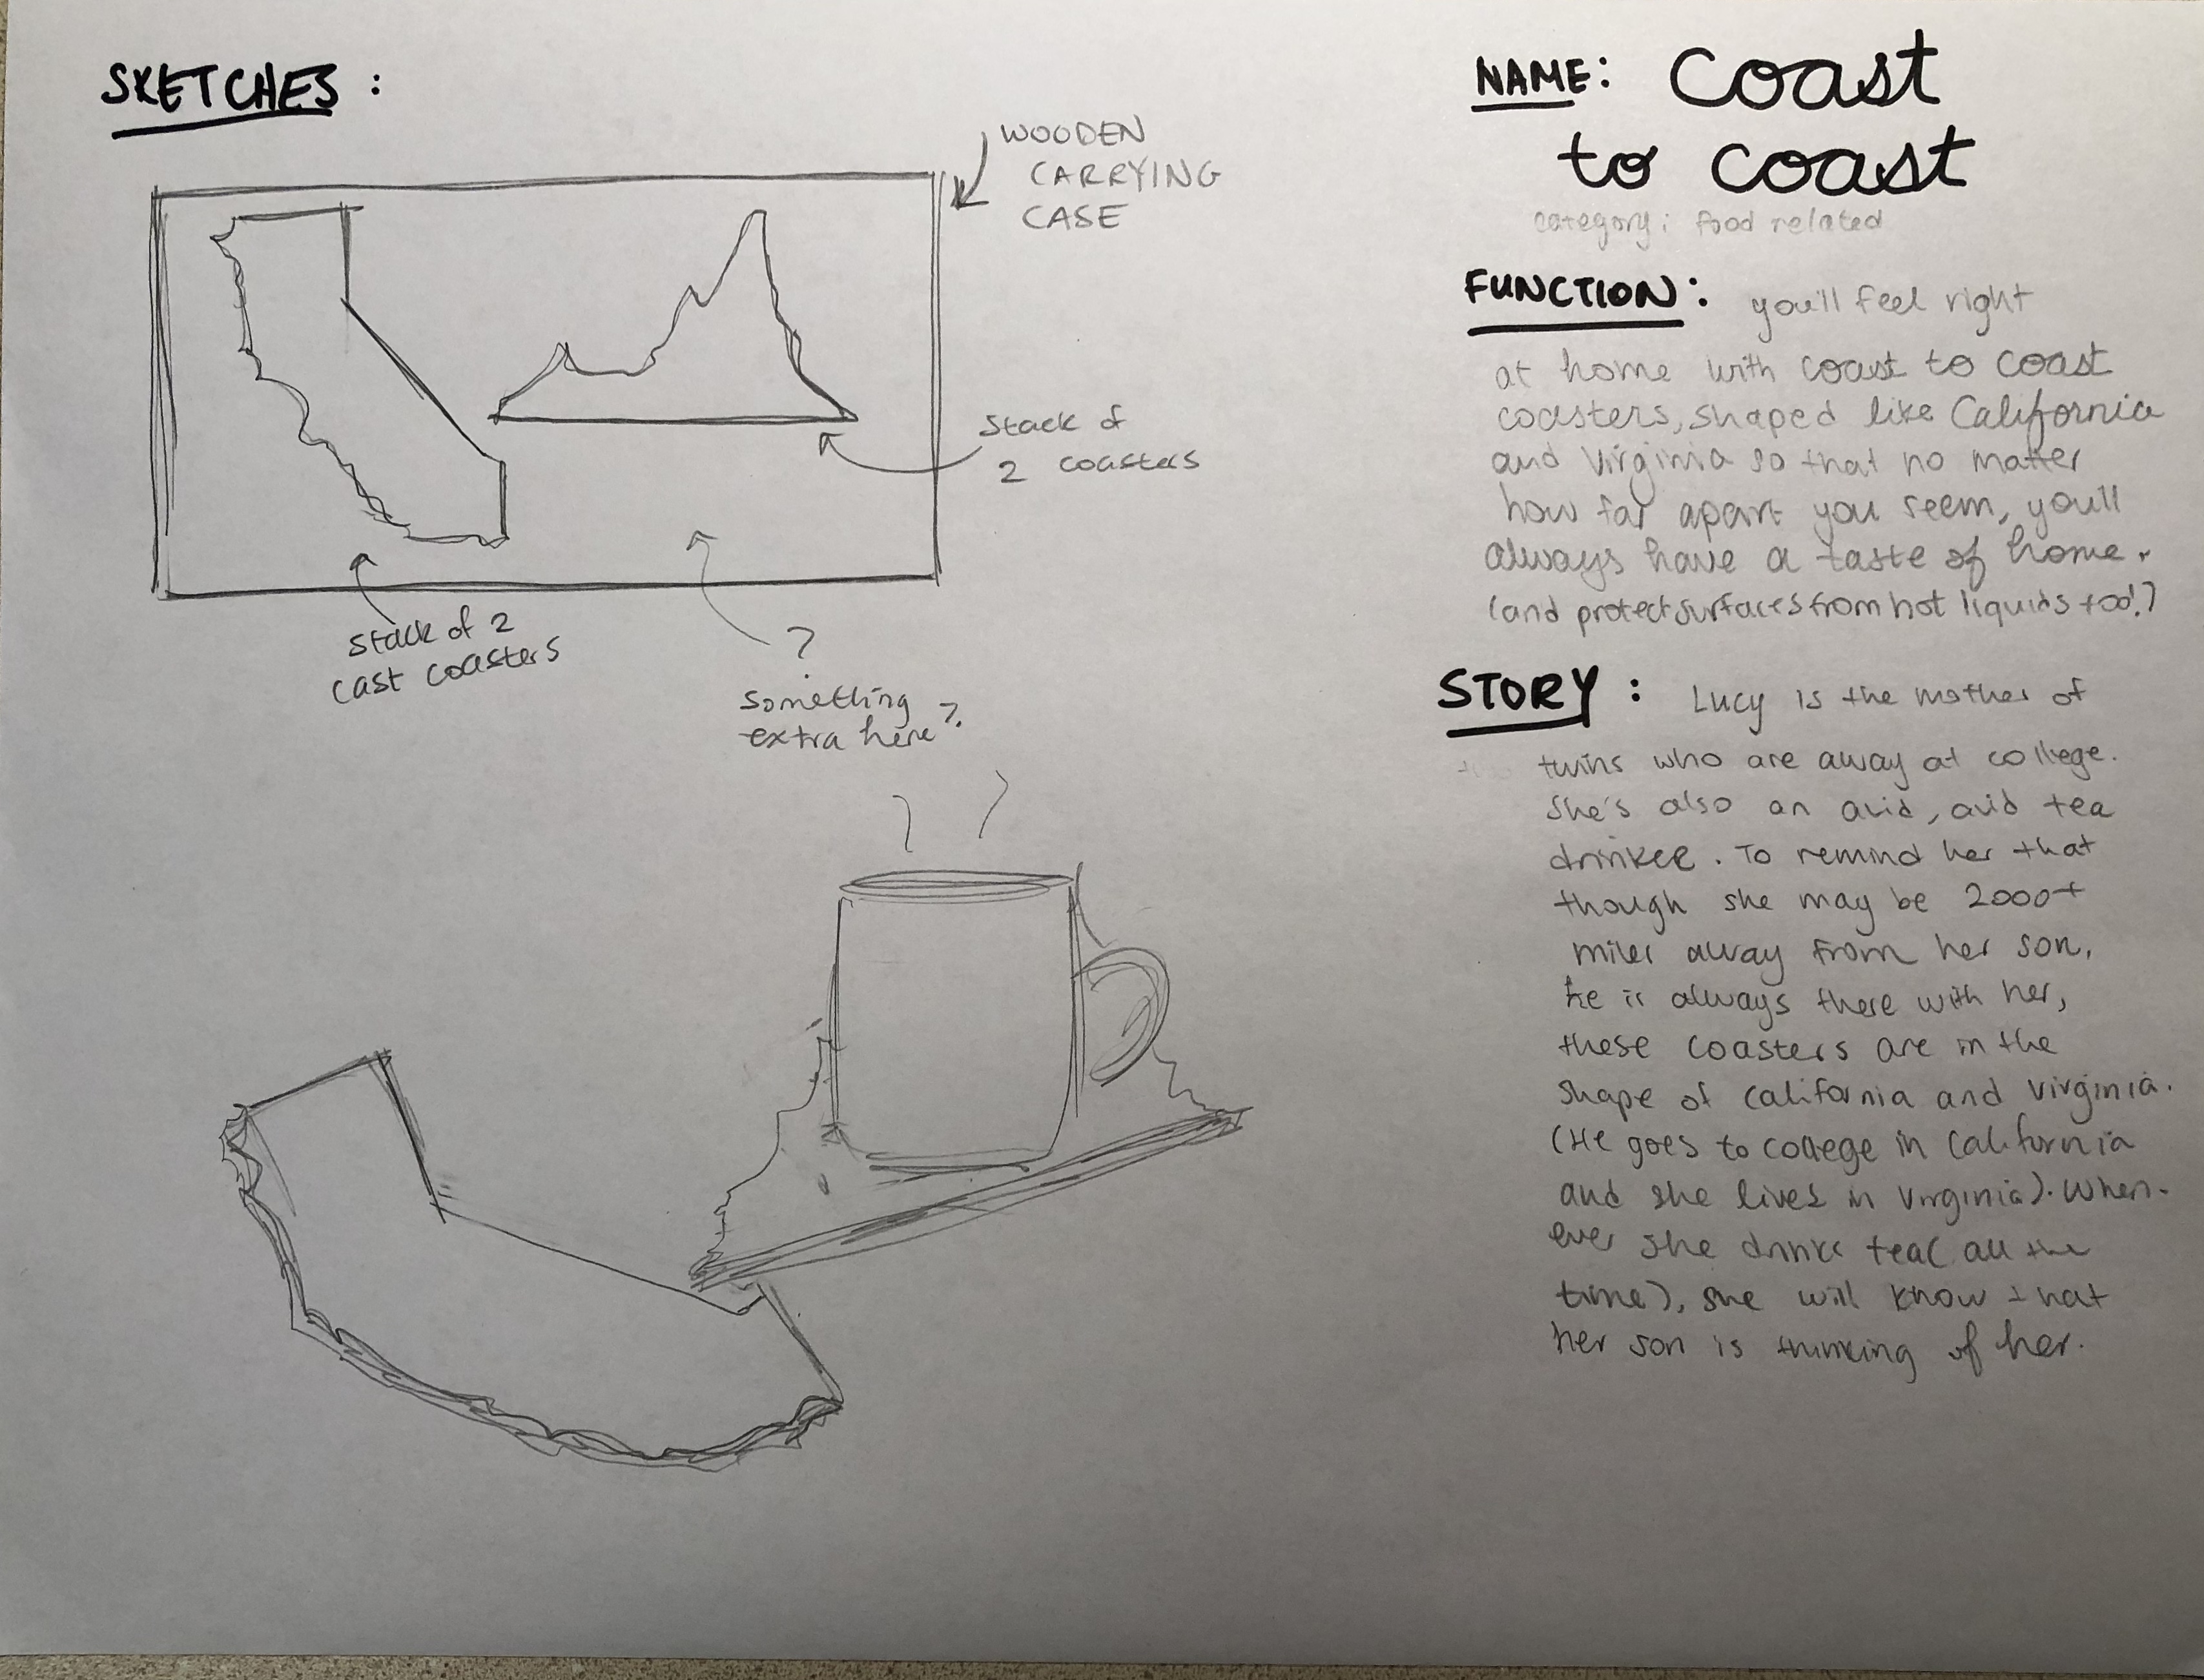 SKETCHES :
WOODEN
CARRYING
CASE
stack of
2 coasters
stack of 2
cast coasters
?
something
extra here?
NAME: Coast
to coast
category: food related
FUNCTION: you'll feel right
at home with coast to coast
coasters, shaped like California
and Virginia so that no matter
how far apart you seem, you'll
always have a taste of home.
(and protect surfaces from hot liquids too!)
STORY : Lucy is the mother of
twins who are away at college.
She's also an avid, avid tea
drinker. To remind her that
though she may be 2000+
miles away from her son,
he is always there with her,
these coasters are in the
shape of California and Virginia.
(He goes to college in California
and she lives in Virginia). When-
ever she drinks tea (all the
time), she will know that
her son is thinking of her.